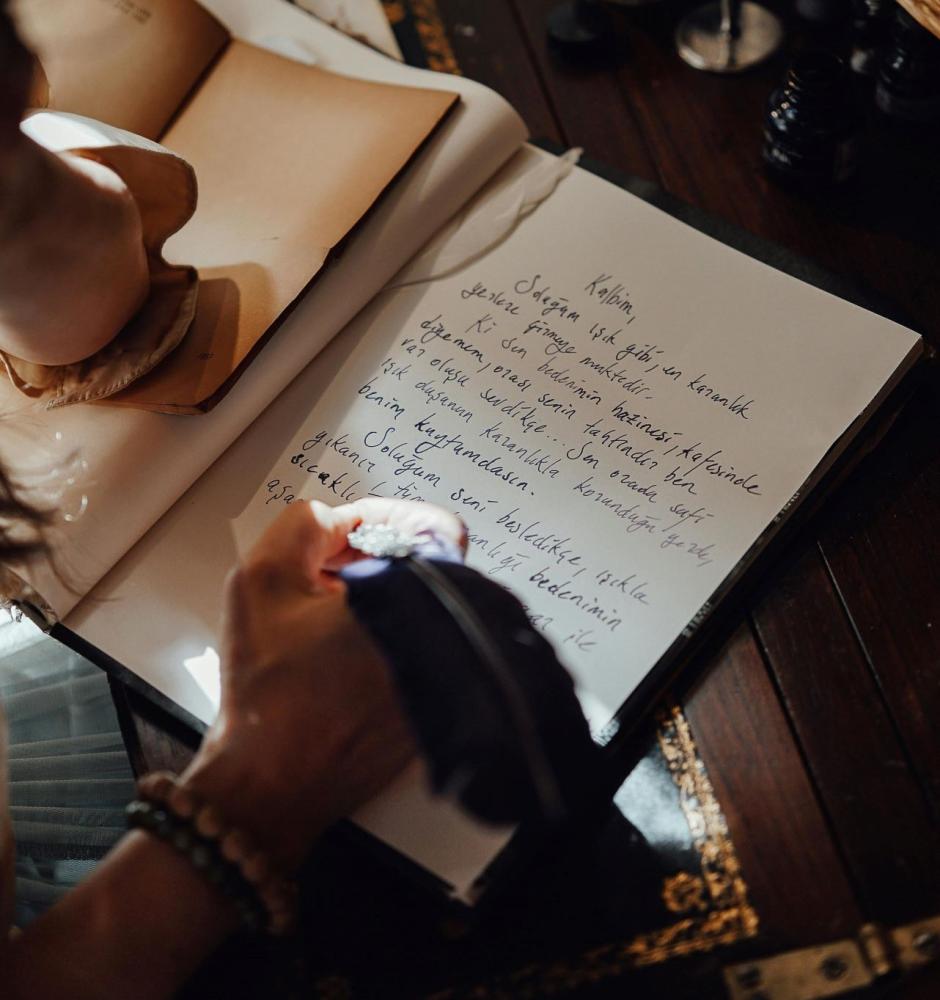 Kalbim,
Soluğum ışık gibi, en karanlık
yerlere girmeye muktedir..
Ki sen bedenimin hazinesi, kafesinde
diyemem, orası senin tahtındır ben
var oluşu sevdikçe... Sen orada safi
ışık duşunun karanlıkla korunduğu yerde,
benim kuytumdasın.
Soluğum seni besledikçe, ışıkla
yıkanır tüm bedenimin
ile